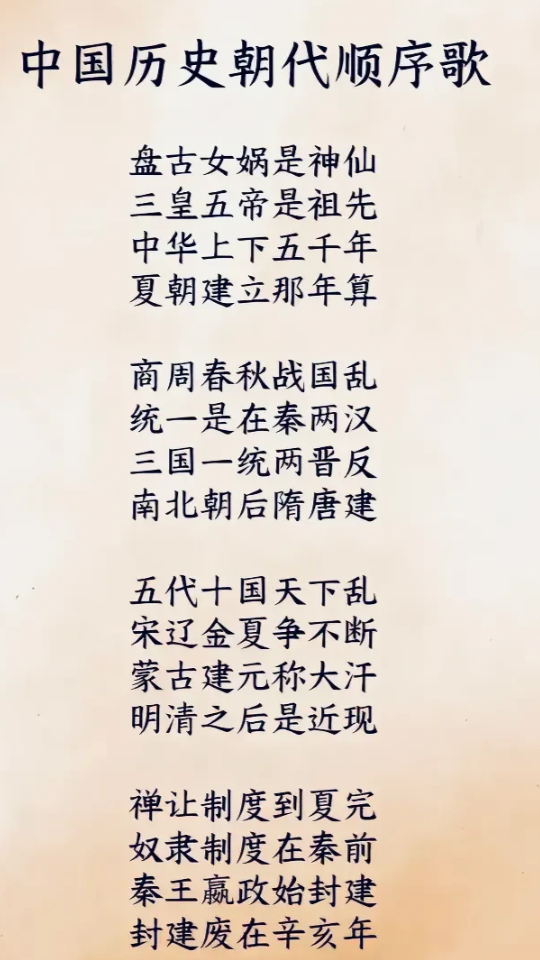 中国历史朝代顺序歌
盘古女娲是神仙
三皇五帝是祖先
中华上下五千年
夏朝建立那年算
商周春秋战国乱
统一是在秦两汉
三国一统两晋反
南北朝后隋唐建
五代十国天下乱
宋辽金夏争不断
蒙古建元称大汗
明清之后是近现
禅让制度到夏完
奴隶制度在秦前
秦王嬴政始封建
封建废在辛亥年